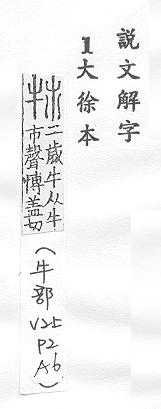 說文解字
1大徐本
㸬 二歲牛从牛
市聲博蓋切
(牛部 V2上 P2 A6)